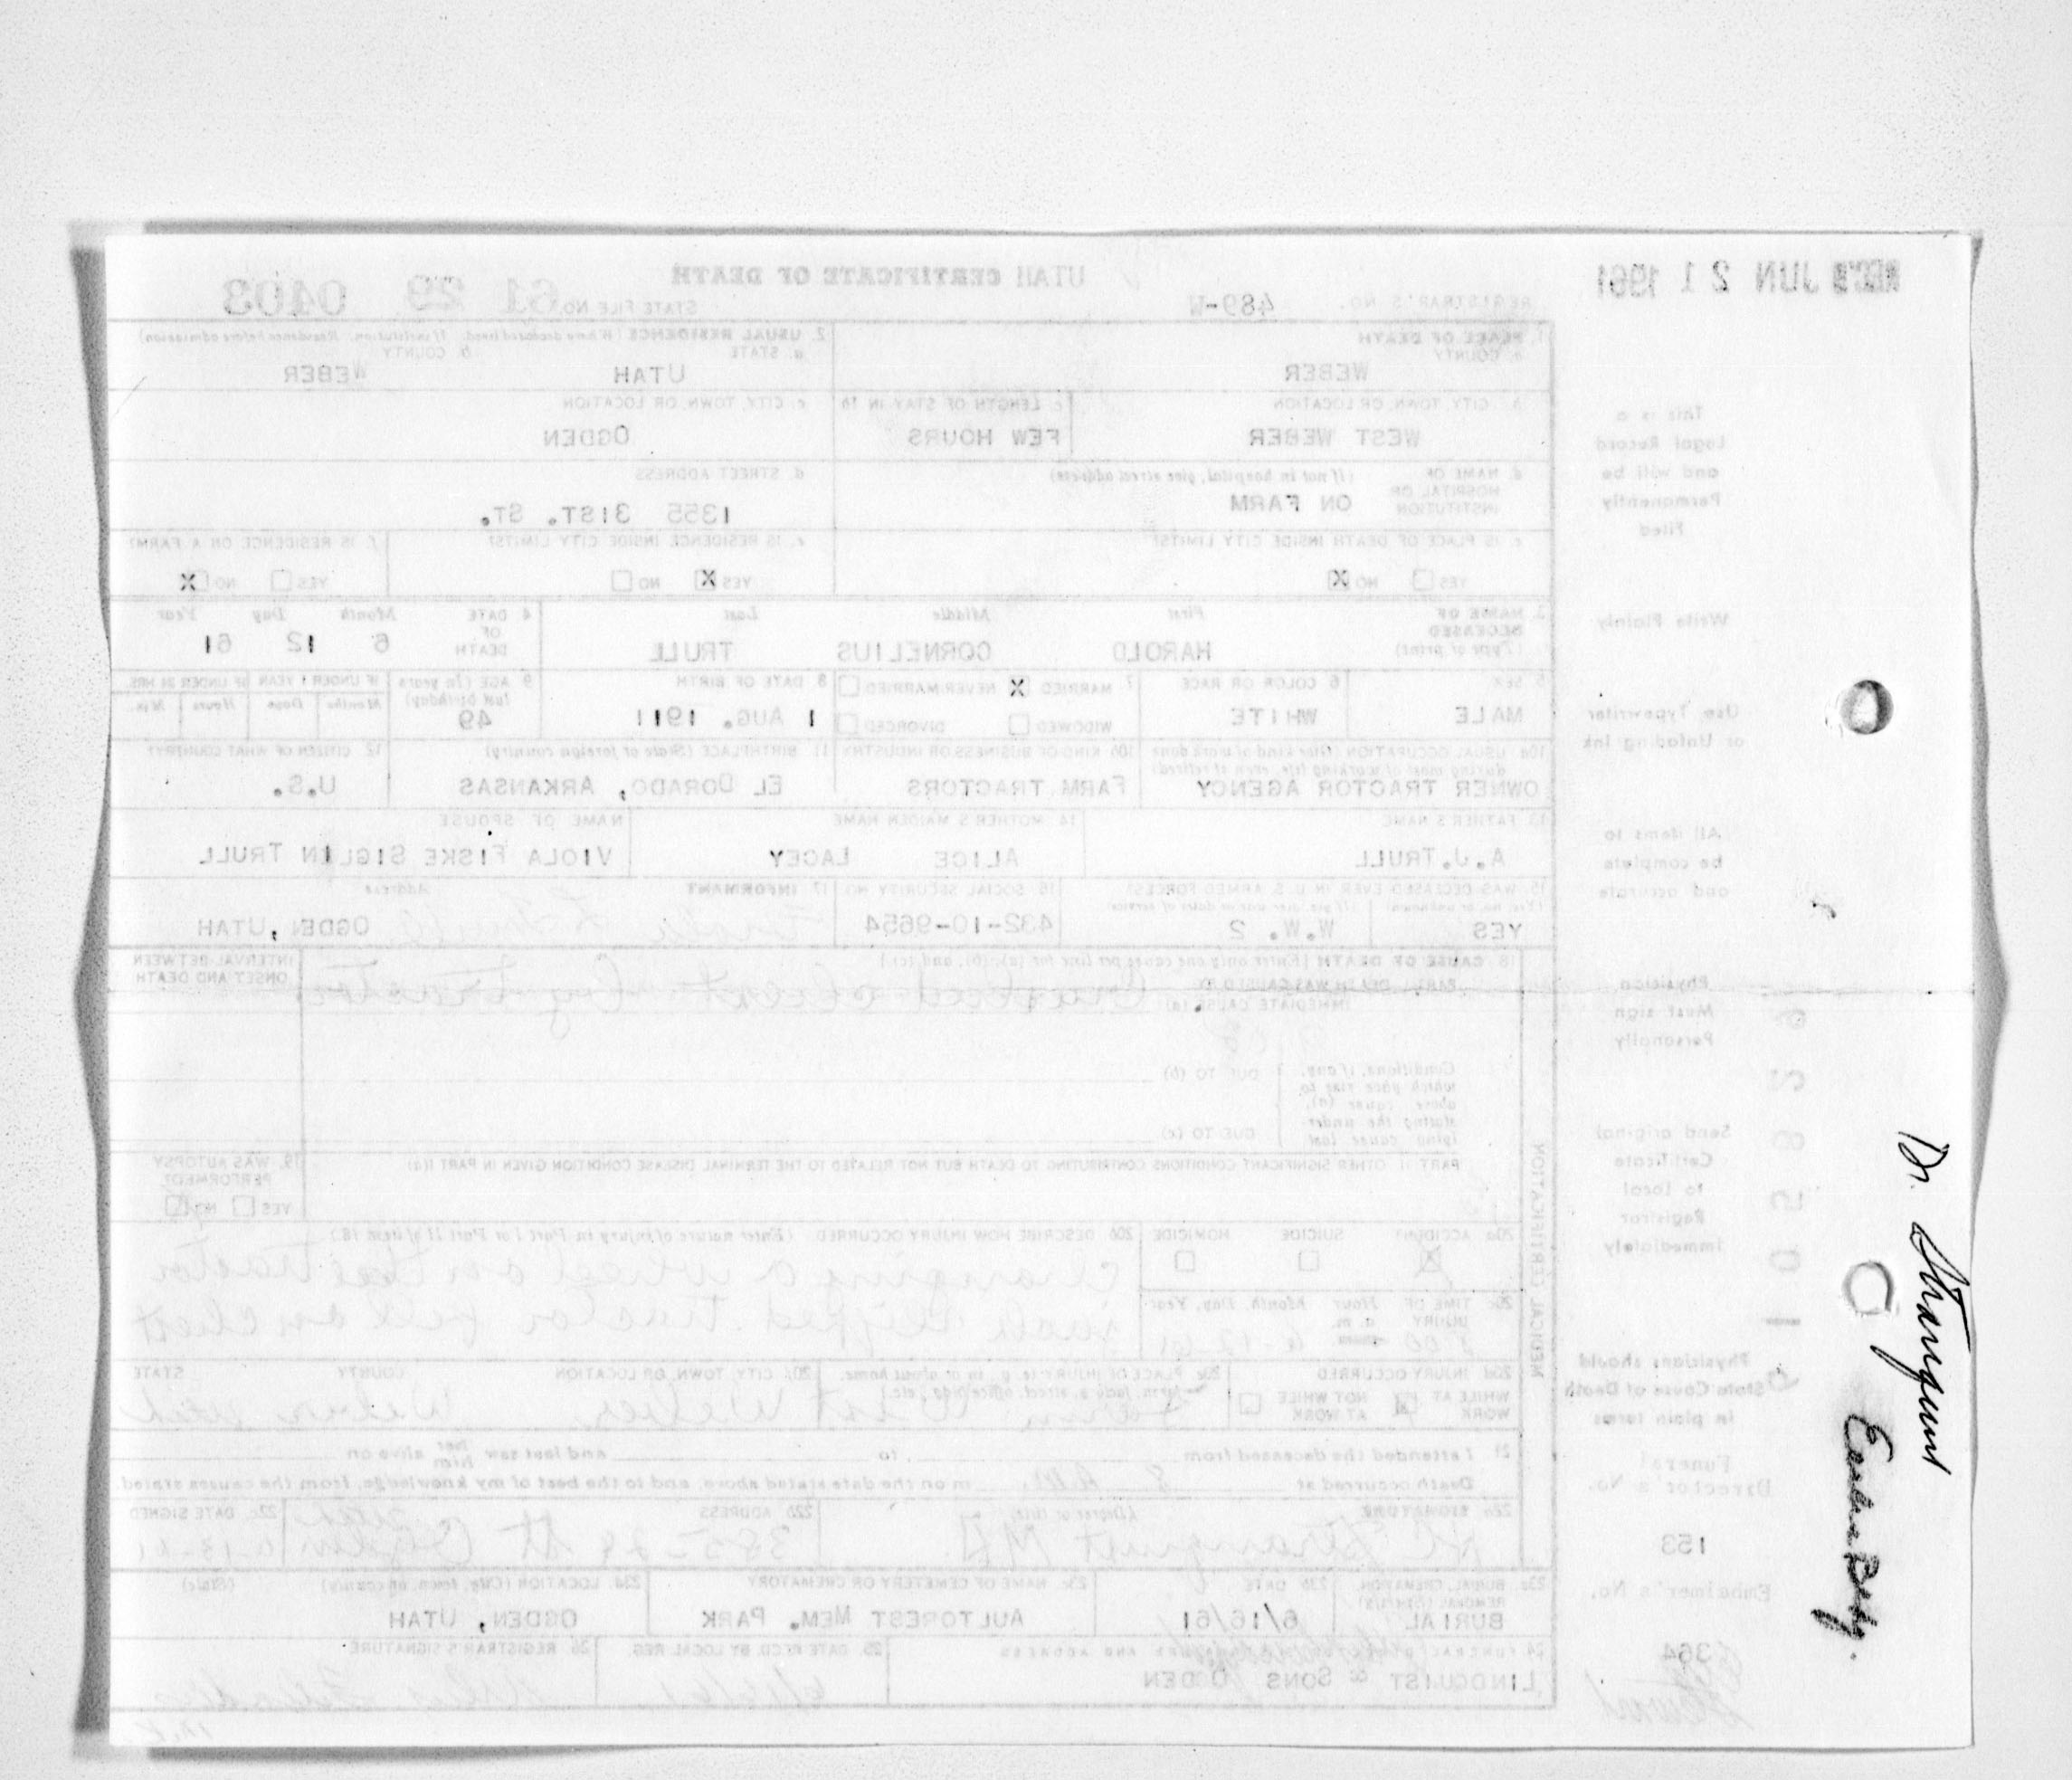 REC'D JUN 21 1961
UTAH CERTIFICATE OF DEATH
REGISTRAR'S NO. 489-W
STATE FILE NO. 61 29 0403
1. PLACE OF DEATH
a. COUNTY
WEBER
2. USUAL RESIDENCE (Where deceased lived. If institution, Residence before admission)
a. STATE b. COUNTY
UTAH WEBER
b. CITY, TOWN, OR LOCATION
WEST WEBER
c. LENGTH OF STAY IN 1b
FEW HOURS
c. CITY, TOWN, OR LOCATION
OGDEN
d. NAME OF HOSPITAL OR INSTITUTION (If not in hospital, give street address)
ON FARM
d. STREET ADDRESS
1355 31ST. ST.
e. IS PLACE OF DEATH INSIDE CITY LIMITS?
YES NO X
e. IS RESIDENCE INSIDE CITY LIMITS?
YES X NO
f. IS RESIDENCE ON A FARM?
YES NO X
3. NAME OF DECEASED (Type or print)
First Middle Last
HAROLD CORNELIUS TRULL
4. DATE OF DEATH
Month Day Year
6 12 61
5. SEX
MALE
6. COLOR OR RACE
WHITE
7. MARRIED X NEVER MARRIED
WIDOWED DIVORCED
8. DATE OF BIRTH
1 AUG. 1911
9. AGE (In years last birthday)
49
IF UNDER 1 YEAR IF UNDER 24 HRS.
Months Days Hours Min.
10a. USUAL OCCUPATION (Give kind of work done during most of working life, even if retired)
OWNER TRACTOR AGENCY
10b. KIND OF BUSINESS OR INDUSTRY
FARM TRACTORS
11. BIRTHPLACE (State or foreign country)
EL DORADO, ARKANSAS
12. CITIZEN OF WHAT COUNTRY?
U.S.
13. FATHER'S NAME
A.J. TRULL
14. MOTHER'S MAIDEN NAME
ALICE LACEY
NAME OF SPOUSE
VIOLA FISKE SIGLIN TRULL
15. WAS DECEASED EVER IN U.S. ARMED FORCES?
(Yes, no, or unknown) (If yes, give war or dates of service)
YES W.W. 2
16. SOCIAL SECURITY NO.
432-10-9654
17. INFORMANT Address
OGDEN, UTAH
18. CAUSE OF DEATH [Enter only one cause per line for (a), (b), and (c).]
PART I. DEATH WAS CAUSED BY:
IMMEDIATE CAUSE (a) Crushed chest by tractor
INTERVAL BETWEEN ONSET AND DEATH
Conditions, if any, which gave rise to above cause (a), stating the underlying cause last
DUE TO (b)
DUE TO (c)
PART II. OTHER SIGNIFICANT CONDITIONS CONTRIBUTING TO DEATH BUT NOT RELATED TO THE TERMINAL DISEASE CONDITION GIVEN IN PART I(a)
19. WAS AUTOPSY PERFORMED?
YES NO
20a. ACCIDENT SUICIDE HOMICIDE
20b. DESCRIBE HOW INJURY OCCURRED. (Enter nature of injury in Part I or Part II of item 18.)
changing a wheel on the tractor
jack slipped tractor fell on chest
20c. TIME OF INJURY Hour Month, Day, Year
a. m.
20d. INJURY OCCURRED
WHILE AT WORK NOT WHILE AT WORK
20e. PLACE OF INJURY (e. g., in or about home, farm, factory, street, office bldg., etc.)
Farm
20f. CITY, TOWN, OR LOCATION COUNTY STATE
West Weber Weber Utah
21. I attended the deceased from , to and last saw her him alive on
Death occurred at 8 m on the date stated above, and to the best of my knowledge, from the causes stated.
22a. SIGNATURE (Degree or title)
Stranquist M.D.
22b. ADDRESS
385-24 St Ogden Utah
22c. DATE SIGNED
6-13-61
23a. BURIAL, CREMATION, REMOVAL (Specify)
BURIAL
23b. DATE
6/16/61
23c. NAME OF CEMETERY OR CREMATORY
AULTOREST MEM. PARK
23d. LOCATION (City, town, or county) (State)
OGDEN, UTAH
24. FUNERAL DIRECTOR'S SIGNATURE AND ADDRESS
LINDQUIST & SONS OGDEN
25. DATE REC'D. BY LOCAL REG.
26. REGISTRAR'S SIGNATURE
MEDICAL CERTIFICATION
This is a
Legal Record
and will be
Permanently
Filed
Write Plainly
Use Typewriter
or Unfading Ink
All items to
be complete
and accurate
Physician
Must sign
Personally
Send original
Certificate
to local
Registrar
immediately
Physicians should
State Cause of Death
in plain terms
Funeral
Director's No.
153
Embalmer's No.
364
Dr. Stranquist